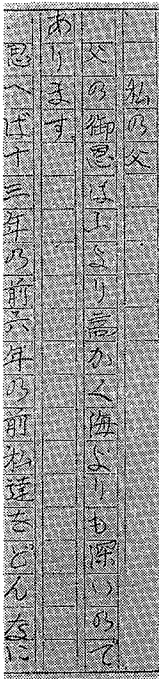 私の父
父の御恩は山より高かく海よりも深いので
あります。
思へば十三年の前六年の前私達をどんなに